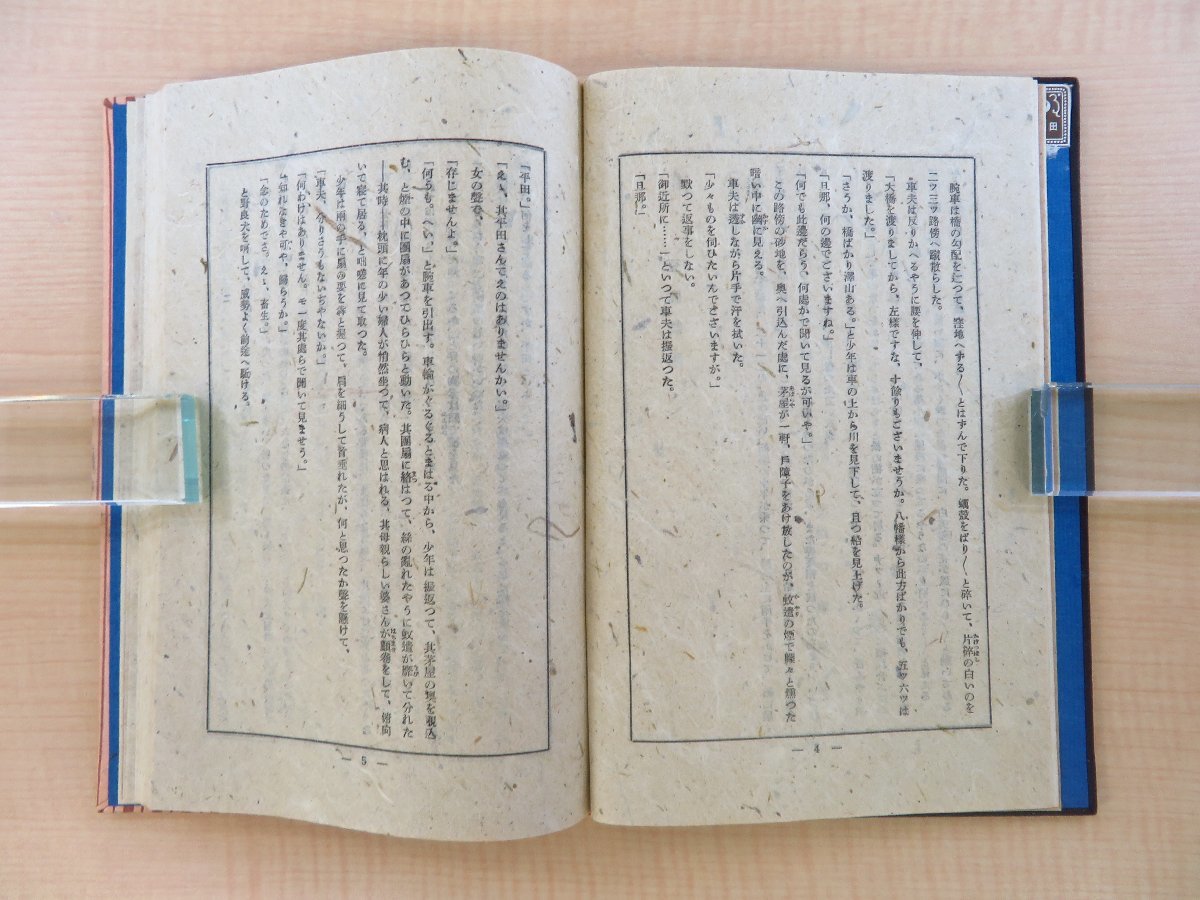 腕車は橋の勾配を辷つて、窪地へずる〳〵とはずんで下りた。蠣殻をばり〳〵と碎いて、片破の白いのを
二ツ三ツ路傍へ蹴散らした。
車夫は反りかへるやうに腰を伸して、
「大橋を渡りましてから、左樣ですな、十餘りもございませうか。八幡樣から此方ばかりでも、五ツ六ツは
渡りました。」
「さうか、橋ばかり澤山ある。」と少年は車の上から川を見下して、且つ船を見上げた。
「旦那、何の邊でございますね。」
「何でも此邊だらう、何處かで聞いて見るが可いや。」
この路傍の砂地を、奥へ引込んだ處に、茅屋が一軒、戸障子をあけ放したのが、蚊遣の煙で朦々と燻つた
暗い中に幽に見える。
車夫は透しながら片手で汗を拭いた。
「少々ものを伺ひたいんでございますが。」
默つて返事をしない。
「御近所に……」といつて車夫は振返つた。
「旦那。」
— 4 —
「平田。」
「えゝ、其平田さんてえのはありませんかい。」
女の聲で、
「存じませんよ。」
「何うも。へい。」と腕車を引出す。車輪がぐるぐるとまはる中から、少年は振返つて、其茅屋の奥を覗込
む、と煙の中に團扇があつてひらひらと動いた。其團扇に絡はつて、絲の亂れたやうに蚊遣が靡いて分れた
――其時――枕頭に年の少い婦人が悄然坐つて、病人と思はれる、其母親らしい婆さんが顱卷をして、俯向
いて寢て居る、と咄嗟に見て取つた。
少年は兩の手に扇の要を犇と握つて、肩を細うして首垂れたが、何と思つたか聲を懸けて、
「車夫、今りさうもないぢやないか。」
「何わけはありません。モ一度其處らで聞いて見ませう。」
「知れなきや可や、歸らうか。」
「念のためでさ。えゝ、畜生。」
と野良犬を叱して、威勢よく前途へ駈ける。
— 5 —
田